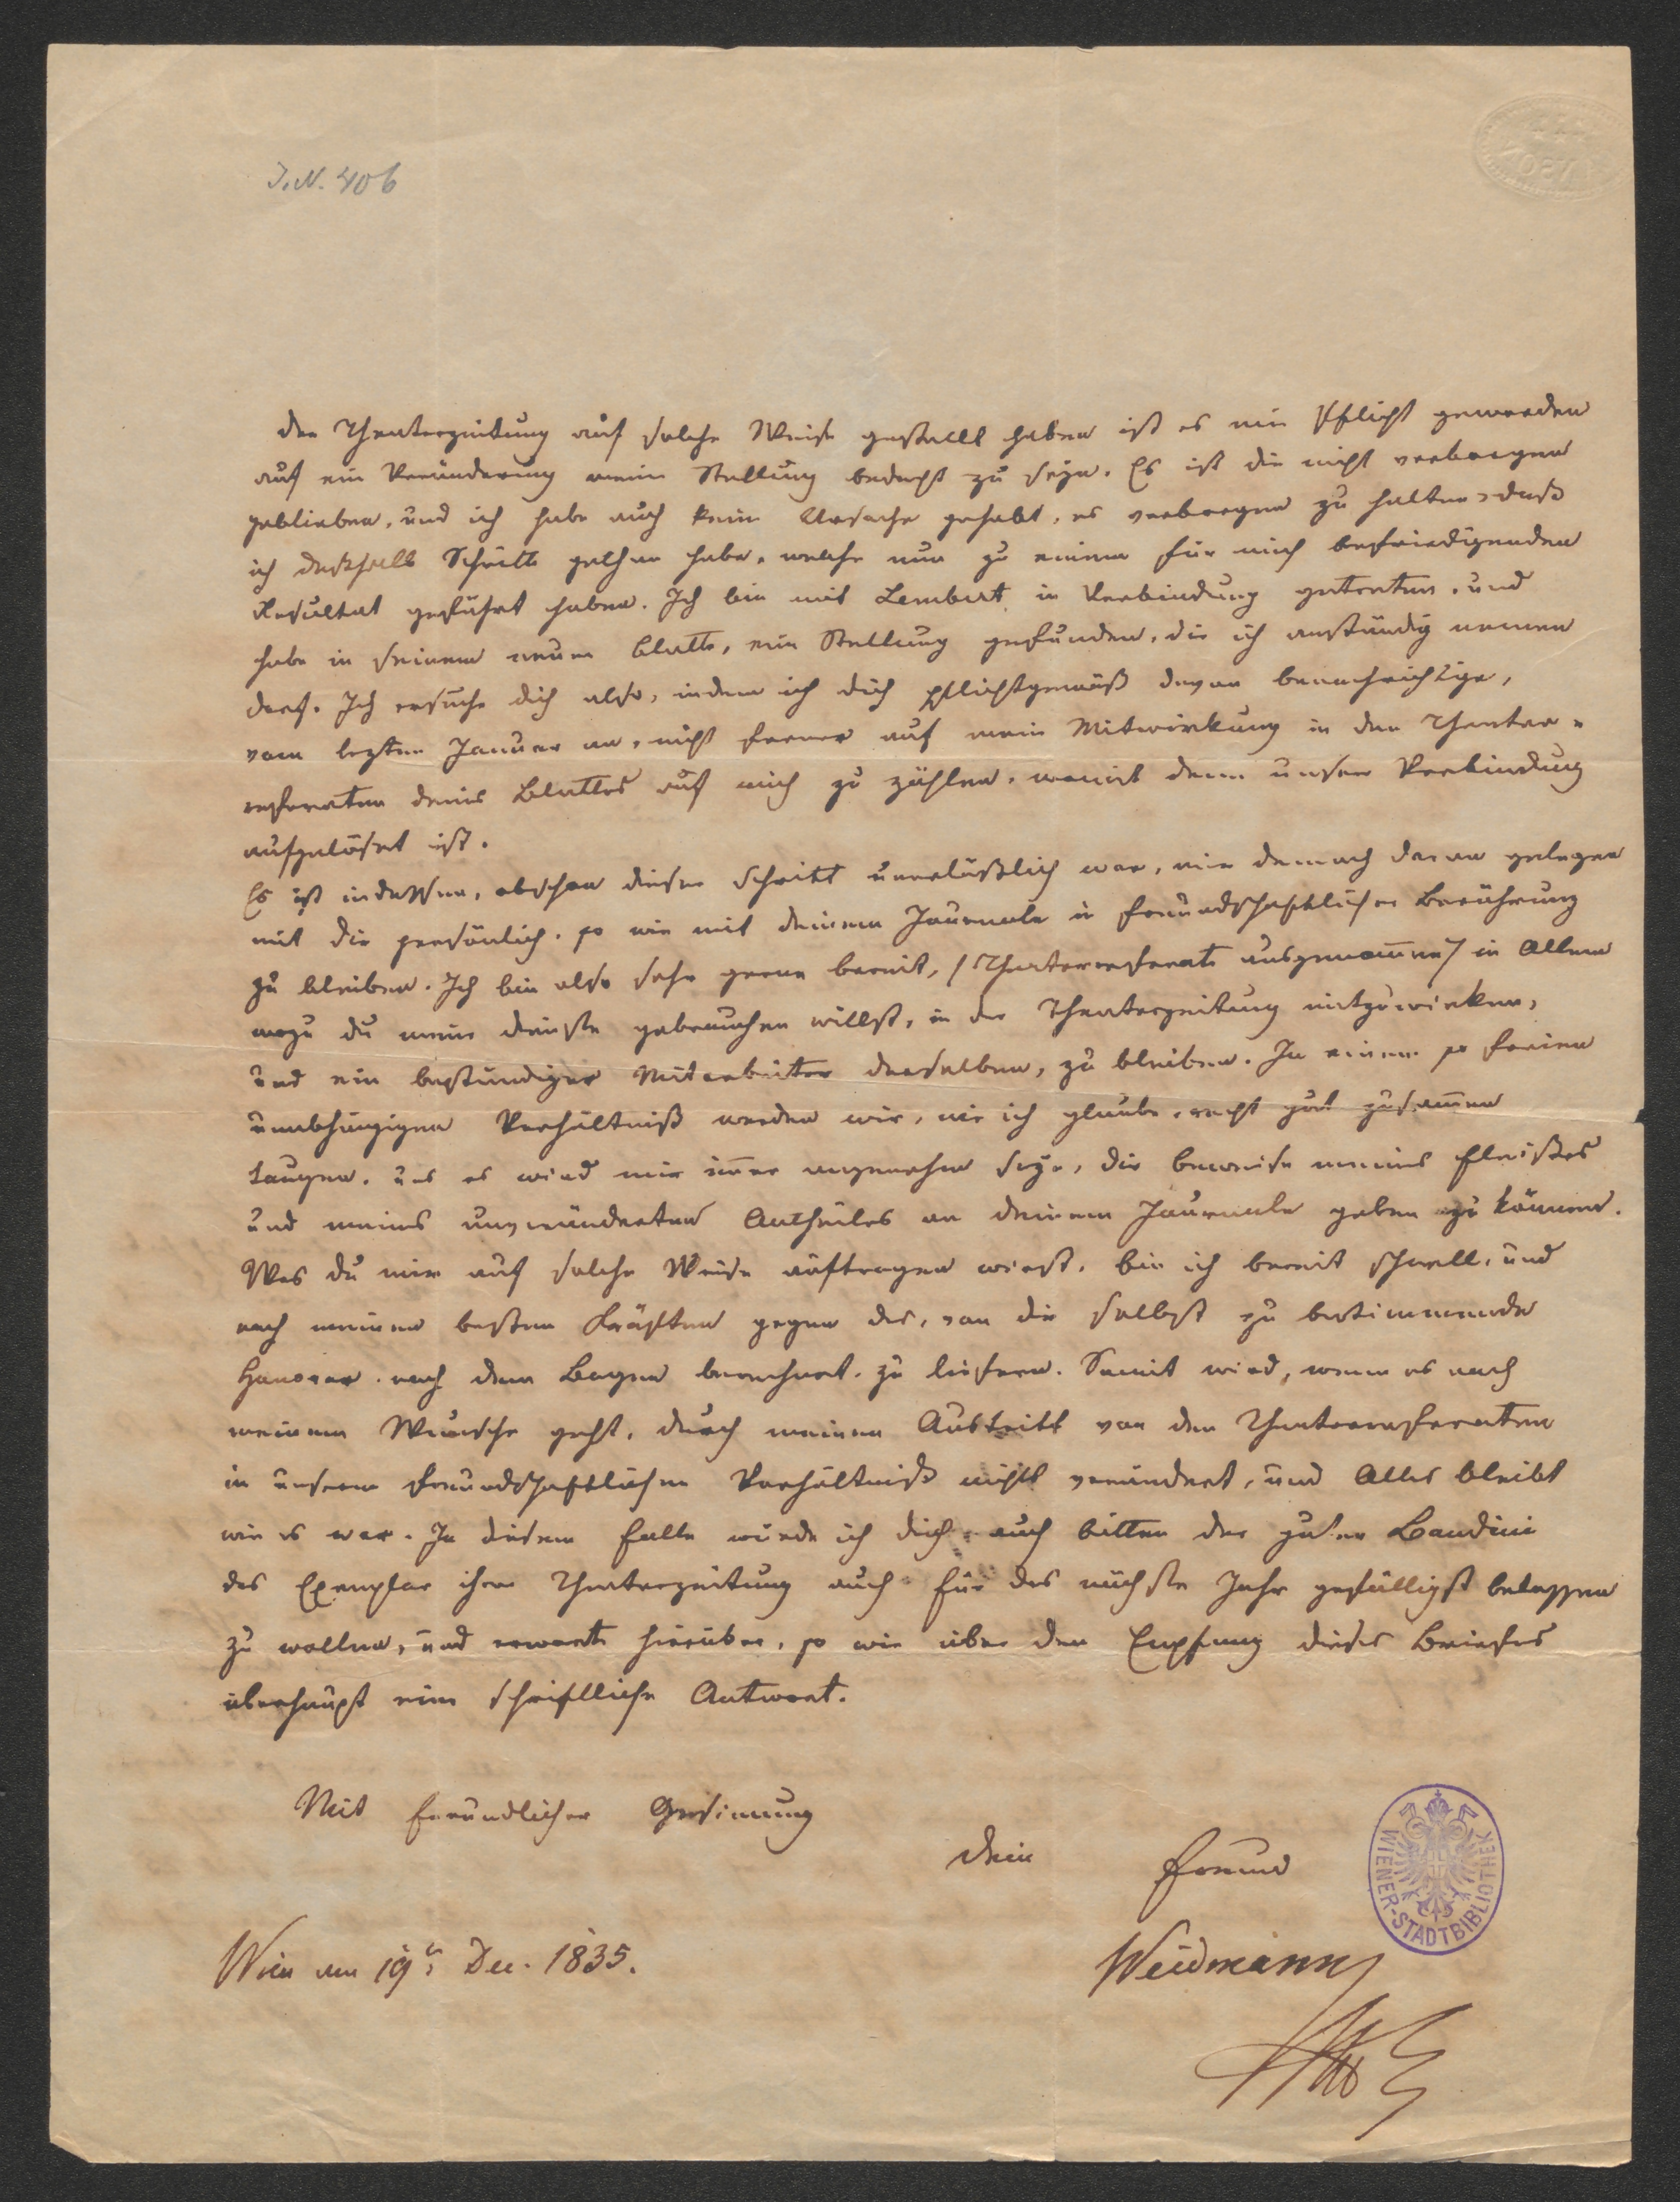 J.N. 406
der Theaterzeitung auf solche Weise gestellt haben ist es mir Pflicht geworden
auf eine Veränderung meiner Stellung bedacht zu seyn. Es ist dir nicht verborgen
geblieben, und ich habe auch keine Ursache gehabt, es verborgen zu halten, daß
ich deßhalb Schritte gethan habe, welche nun zu einem für mich befriedigenden
Resultat geführt haben. Ich bin mit Lembert in Verbindung getreten, und
habe in seinem neuen Blatte, eine Stellung gefunden, die ich anständig nennen
darf. Ich ersuche dich also, indem ich dich pflichtgemäß davon benachrichtige,
vom lezten Januar an, nicht ferner auf meine Mitwirkung in den Theater-
referaten deines Blattes auf mich zu zählen, womit denn unsere Verbindung
aufgelöset ist.
Es ist indessen, obschon dieser Schritt unerläßlich war, mir demnach daran gelegen
mit dir persönlich, so wie mit deinem Journale in freundschaftlicher Berührung
zu bleiben. Ich bin also sehr gerne bereit, /Theaterreferate ausgenommen/ in Allem
wozu du meine Dienste gebrauchen willst, in der Theaterzeitung mitzuwirken,
und ein beständiger Mitarbeiter derselben, zu bleiben. In einem so freien
unabhängigen Verhältniß werden wir, wie ich glaube, recht gut zusammen
taugen, und es wird mir immer angenehm seyn, dir Beweise meines Fleißes
und meines unveränderten Antheiles an deinem Journale geben zu können.
Was du mir auf solche Weise auftragen wirst, bin ich bereit schnell, und
nach meinen besten Kräften gegen das, von dir selbst zu bestimmende
Honorar, nach dem Bogen berechnet, zu liefern. Somit wird, wenn es nach
meinem Wunsche geht, durch meinen Austritt von den Theaterreferaten
in unserem freundschaftlichen Verhältniß nichts verändert, und Alles bleibt
wie es war. In diesem Falle würde ich dich auch bitten der guten Bandini
das Exemplar ihrer Theaterzeitung auch für das nächste Jahr gefälligst belassen
zu wollen, und erwarte hierüber, so wie über den Empfang dieses Briefes
überhaupt eine schriftliche Antwort.
Mit freundlicher Gesinnung
Dein Freund
Weidmann
Wien am 19t Dec. 1835.
WIENER-STADTBIBLIOTHEK